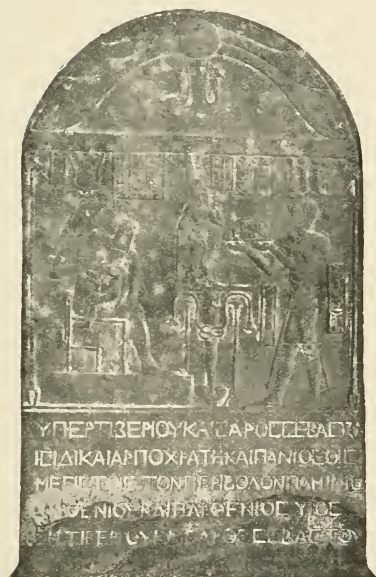 ΥΠΕΡΤΙΒΕΡΙΟΥΚΑΙΣΑΡΟΣΣΕΒΑΣΤΟΥ
ΙΣΙΔΙΚΑΙΑΡΠΟΧΡΑΤΗΚΑΙΠΑΝΙΘΕΟΙΣ
ΜΕΓΙΣΤΟΙΣΤΟΝΠΕΡΙΒΟΛΟΝΠΑΜΙΝΙΣ
ΘΕΝΙΟΥΚΑΙΠΑΡΘΕΝΙΟΣΥΙΟΣ
ΤΙΒΕΡΙΟΥΚΑΙΣΑΡΟΣΣΕΒΑΣΤΟΥ